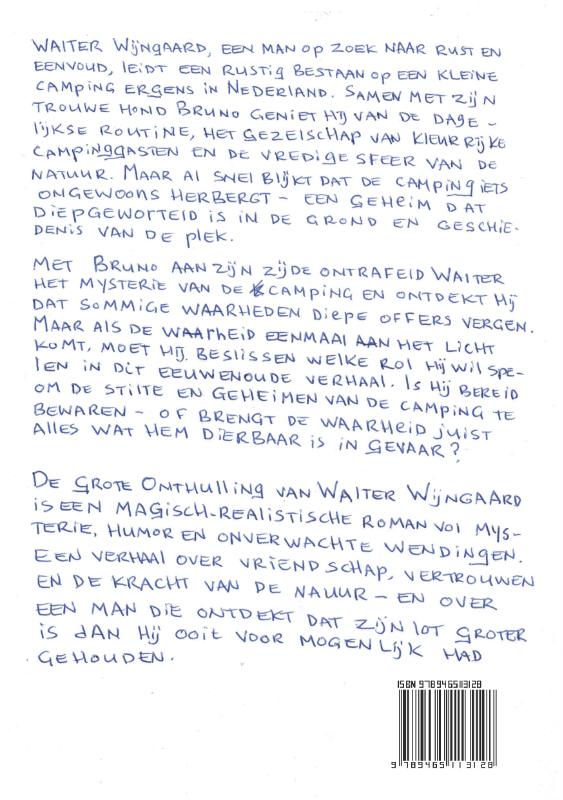 WALTER WIJNGAARD, EEN MAN OP ZOEK NAAR RUST EN
EENVOUD, LEIDT EEN RUSTIG BESTAAN OP EEN KLEINE
CAMPING ERGENS IN NEDERLAND. SAMEN MET ZIJN
TROUWE HOND BRUNO GENIET HIJ VAN DE DAGE-
LIJKSE ROUTINE, HET GEZELSCHAP VAN KLEURRIJKE
CAMPINGGASTEN EN DE VREDIGE SFEER VAN DE
NATUUR. MAAR AL SNEL BLIJKT DAT DE CAMPING IETS
ONGEWOONS HERBERGT - EEN GEHEIM DAT
DIEPGEWORTELD IS IN DE GROND EN GESCHIE-
DENIS VAN DE PLEK.
MET BRUNO AAN ZIJN ZIJDE ONTRAFELD WALTER
HET MYSTERIE VAN DE CAMPING EN ONTDEKT HIJ
DAT SOMMIGE WAARHEDEN DIEPE OFFERS VERGEN.
MAAR ALS DE WAARHEID EENMAAL AAN HET LICHT
KOMT, MOET HIJ BESLISSEN WELKE ROL HIJ WIL SPE-
LEN IN DIT EEUWENOUDE VERHAAL. IS HIJ BEREID
OM DE STILTE EN GEHEIMEN VAN DE CAMPING TE
BEWAREN - OF BRENGT DE WAARHEID JUIST
ALLES WAT HEM DIERBAAR IS IN GEVAAR?
DE GROTE ONTHULLING VAN WALTER WIJNGAARD
IS EEN MAGISCH-REALISTISCHE ROMAN VOL MYS-
TERIE, HUMOR EN ONVERWACHTE WENDINGEN.
EEN VERHAAL OVER VRIENDSCHAP, VERTROUWEN
EN DE KRACHT VAN DE NAUUR - EN OVER
EEN MAN DIE ONTDEKT DAT ZIJN LOT GROTER
IS DAN HIJ OOIT VOOR MOGELIJK HAD
GEHOUDEN.
ISBN 9789465113128
9 789465 113128